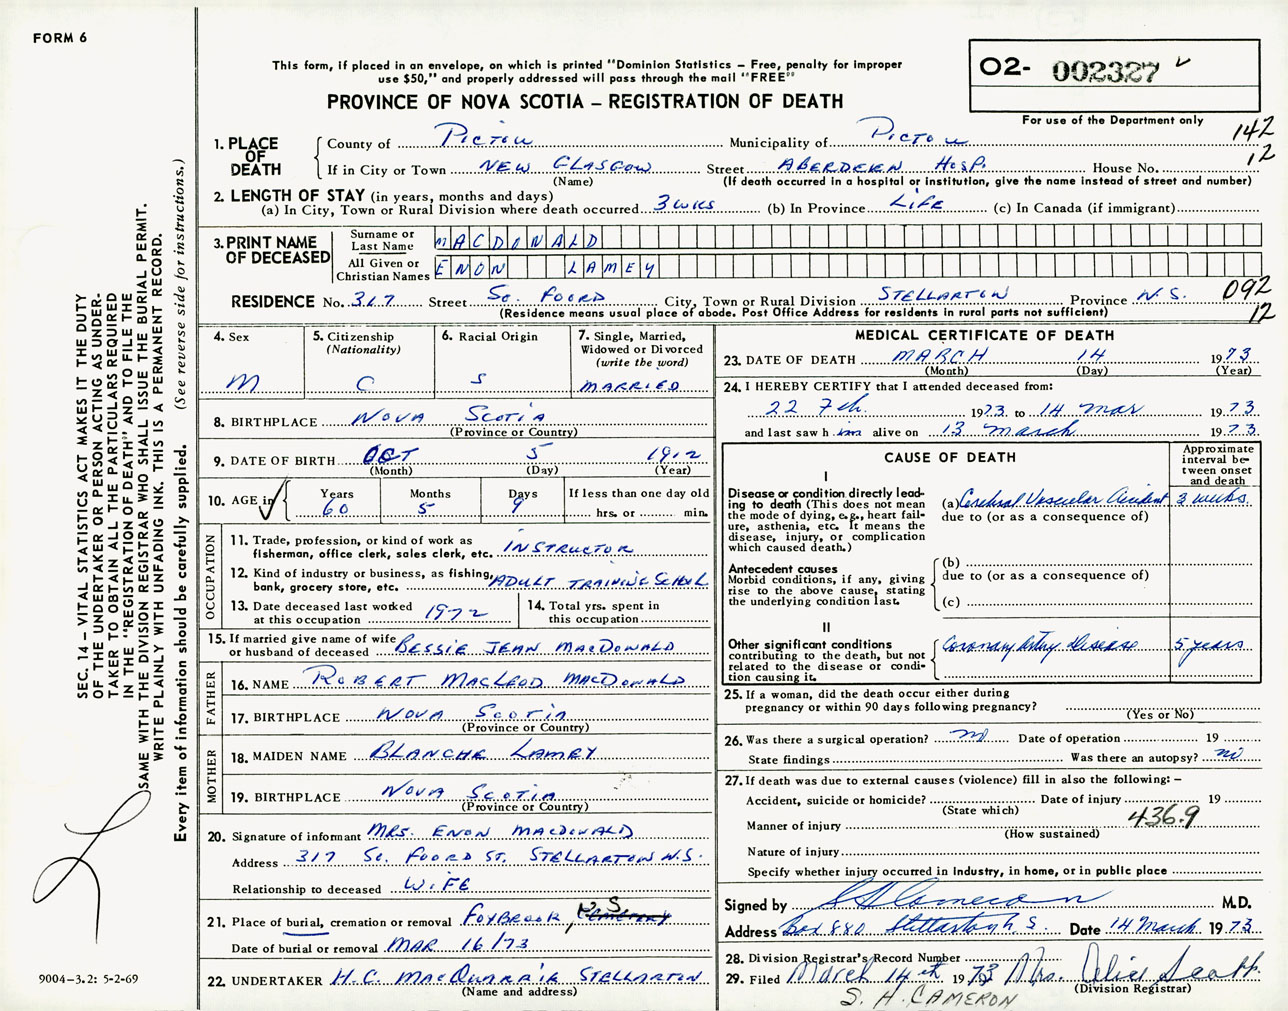 FORM 6
This form, if placed in an envelope, on which is printed "Dominion Statistics – Free, penalty for improper
use $50," and properly addressed will pass through the mail "FREE"
PROVINCE OF NOVA SCOTIA – REGISTRATION OF DEATH
O2- 002327
For use of the Department only
142
12
1. PLACE OF DEATH
County of PICTOU Municipality of PICTOU
If in City or Town NEW GLASGOW Street ABERDEEN HOSP. House No.
(Name) (If death occurred in a hospital or institution, give the name instead of street and number)
2. LENGTH OF STAY (in years, months and days)
(a) In City, Town or Rural Division where death occurred 3 WKS (b) In Province LIFE (c) In Canada (if immigrant)
3. PRINT NAME OF DECEASED
Surname or Last Name MACDONALD
All Given or Christian Names ENON LAMEY
RESIDENCE No. 317 Street SO. FOORD City, Town or Rural Division STELLARTON Province N.S. 092
(Residence means usual place of abode. Post Office Address for residents in rural parts not sufficient) 12
4. Sex M
5. Citizenship (Nationality) C
6. Racial Origin S
7. Single, Married, Widowed or Divorced (write the word) MARRIED
8. BIRTHPLACE NOVA SCOTIA
(Province or Country)
9. DATE OF BIRTH OCT 5 1912
(Month) (Day) (Year)
10. AGE in Years 60 Months 5 Days 9 If less than one day old
hrs. or min.
OCCUPATION
11. Trade, profession, or kind of work as
fisherman, office clerk, sales clerk, etc. INSTRUCTOR
12. Kind of industry or business, as fishing,
bank, grocery store, etc. ADULT TRAINING SCHOOL
13. Date deceased last worked
at this occupation 1972
14. Total yrs. spent in
this occupation
15. If married give name of wife
or husband of deceased BESSIE JEAN MACDONALD
FATHER
16. NAME ROBERT MACLEOD MACDONALD
17. BIRTHPLACE NOVA SCOTIA
(Province or Country)
MOTHER
18. MAIDEN NAME BLANCHE LAMEY
19. BIRTHPLACE NOVA SCOTIA
(Province or Country)
20. Signature of informant MRS. ENON MACDONALD
Address 317 SO. FOORD ST. STELLARTON N.S.
Relationship to deceased WIFE
21. Place of burial, cremation or removal FOXBROOK, N.S. CEMETERY
Date of burial or removal MAR 16/73
22. UNDERTAKER H.C. MACQUARRIE STELLARTON
(Name and address)
MEDICAL CERTIFICATE OF DEATH
23. DATE OF DEATH MARCH 14 1973
(Month) (Day) (Year)
24. I HEREBY CERTIFY that I attended deceased from:
22 Feb. 1973 to 14 Mar 1973
and last saw him alive on 13 March 1973
CAUSE OF DEATH
Approximate interval between onset and death
I
Disease or condition directly leading to death (This does not mean the mode of dying, e.g., heart failure, asthenia, etc. It means the disease, injury, or complication which caused death.)
(a) Cerebral Vascular Accident 3 weeks
due to (or as a consequence of)
Antecedent causes
Morbid conditions, if any, giving rise to the above cause, stating the underlying condition last.
(b)
due to (or as a consequence of)
(c)
II
Other significant conditions
contributing to the death, but not related to the disease or condition causing it.
Coronary Artery Disease 5 years
25. If a woman, did the death occur either during
pregnancy or within 90 days following pregnancy?
(Yes or No)
26. Was there a surgical operation? no Date of operation 19
State findings Was there an autopsy? no
27. If death was due to external causes (violence) fill in also the following: –
Accident, suicide or homicide? Date of injury 19
(State which)
436.9
Manner of injury
(How sustained)
Nature of injury
Specify whether injury occurred in Industry, in home, or in public place
Signed by S H Cameron M.D.
Address Box 880 Stellarton N.S. Date 14 March 1973
28. Division Registrar's Record Number
29. Filed March 14th 1973 Mrs. Alice
(Division Registrar)
S. H. CAMERON
SEC. 14 – VITAL STATISTICS ACT MAKES IT THE DUTY
OF THE UNDERTAKER OR PERSON ACTING AS UNDER-
TAKER TO OBTAIN ALL THE PARTICULARS REQUIRED
IN THE "REGISTRATION OF DEATH" AND TO FILE THE
SAME WITH THE DIVISION REGISTRAR WHO SHALL ISSUE THE BURIAL PERMIT.
WRITE PLAINLY WITH UNFADING INK. THIS IS A PERMANENT RECORD.
Every item of information should be carefully supplied. (See reverse side for instructions.)
9004-3.2: 5-2-69